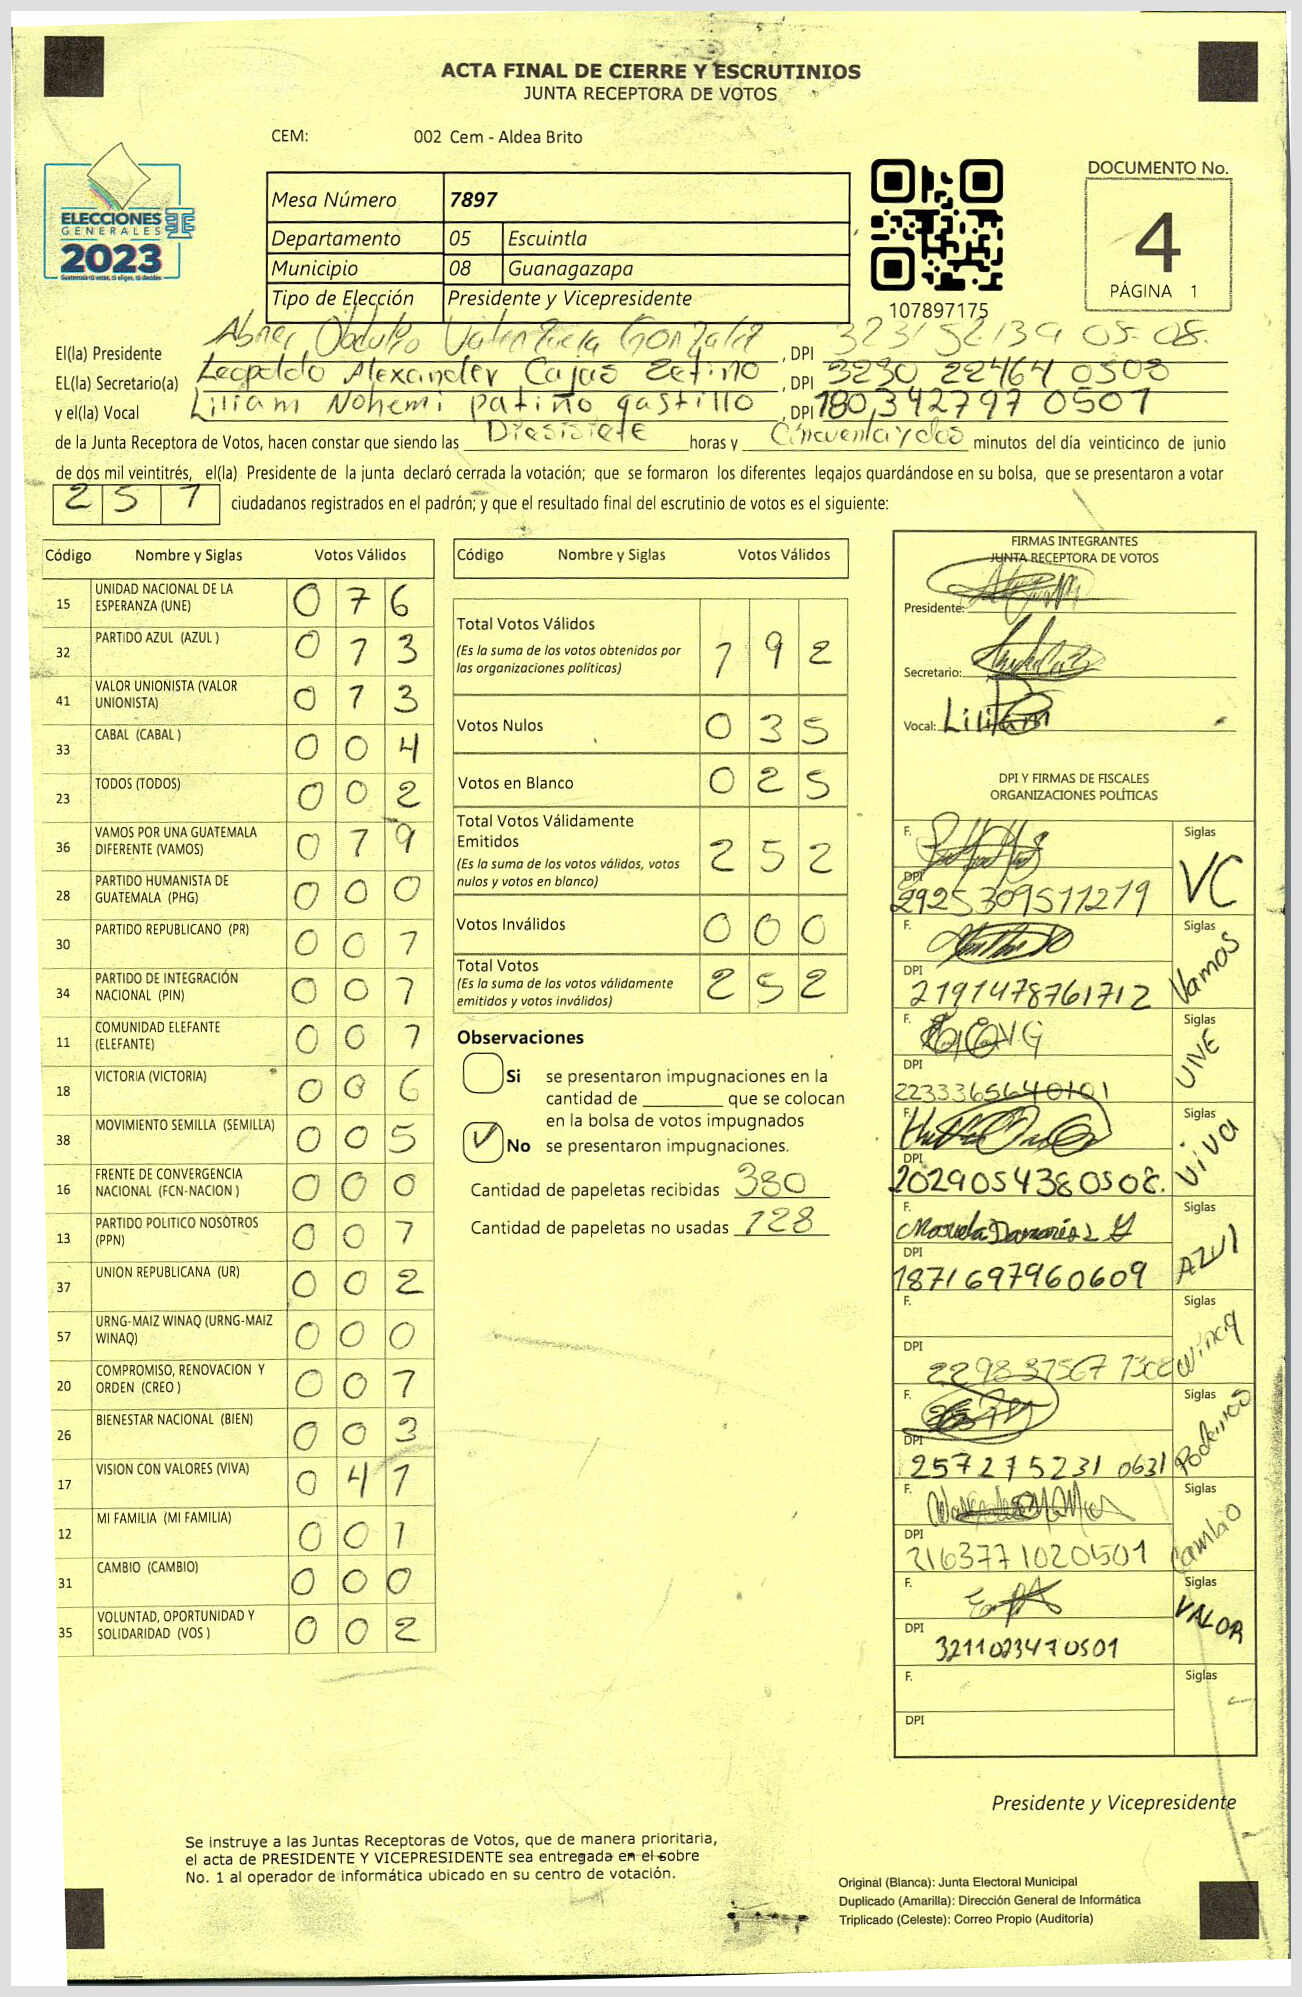 ACTA FINAL DE CIERRE Y ESCRUTINIOS
JUNTA RECEPTORA DE VOTOS
CEM: 002 Cem - Aldea Brito
ELECCIONES
GENERALES
2023
Mesa Número 7897
Departamento 05 Escuintla
Municipio 08 Guanagazapa
Tipo de Elección Presidente y Vicepresidente
107897175
DOCUMENTO No.
4
PÁGINA 1
El(la) Presidente Abner Obdulio Valenzuela Gonzalez, DPI
EL(la) Secretario(a) Leopoldo Alexander Cajas Zetino, DPI 3230 22464 0508
y el(la) Vocal Liliam Nohemi patiño gastillo, DPI 180342797 0501
de la Junta Receptora de Votos, hacen constar que siendo las Diesisiete horas y Cincuentaydos minutos del día veinticinco de junio
de dos mil veintitrés, el(la) Presidente de la junta declaró cerrada la votación; que se formaron los diferentes legajos quardándose en su bolsa, que se presentaron a votar
251 ciudadanos registrados en el padrón; y que el resultado final del escrutinio de votos es el siguiente:
Código Nombre y Siglas Votos Válidos
15 UNIDAD NACIONAL DE LA ESPERANZA (UNE) 016
32 PARTIDO AZUL (AZUL ) 013
41 VALOR UNIONISTA (VALOR UNIONISTA) 013
33 CABAL (CABAL ) 004
23 TODOS (TODOS) 002
36 VAMOS POR UNA GUATEMALA DIFERENTE (VAMOS) 079
28 PARTIDO HUMANISTA DE GUATEMALA (PHG) 000
30 PARTIDO REPUBLICANO (PR) 001
34 PARTIDO DE INTEGRACIÓN NACIONAL (PIN) 001
11 COMUNIDAD ELEFANTE (ELEFANTE) 001
18 VICTORIA (VICTORIA) 006
38 MOVIMIENTO SEMILLA (SEMILLA) 005
16 FRENTE DE CONVERGENCIA NACIONAL (FCN-NACION ) 000
13 PARTIDO POLITICO NOSOTROS (PPN) 001
37 UNION REPUBLICANA (UR) 002
57 URNG-MAIZ WINAQ (URNG-MAIZ WINAQ) 000
20 COMPROMISO, RENOVACION Y ORDEN (CREO ) 001
26 BIENESTAR NACIONAL (BIEN) 003
17 VISION CON VALORES (VIVA) 041
12 MI FAMILIA (MI FAMILIA) 001
31 CAMBIO (CAMBIO) 000
35 VOLUNTAD, OPORTUNIDAD Y SOLIDARIDAD (VOS ) 002
Código Nombre y Siglas Votos Válidos
Total Votos Válidos 192
(Es la suma de los votos obtenidos por
las organizaciones políticas)
Votos Nulos 035
Votos en Blanco 025
Total Votos Válidamente
Emitidos 252
(Es la suma de los votos válidos, votos
nulos y votos en blanco)
Votos Inválidos 000
Total Votos 252
(Es la suma de los votos válidamente
emitidos y votos inválidos)
Observaciones
Si se presentaron impugnaciones en la
cantidad de ________ que se colocan
en la bolsa de votos impugnados
✓ No se presentaron impugnaciones.
Cantidad de papeletas recibidas 380
Cantidad de papeletas no usadas 128
FIRMAS INTEGRANTES
JUNTA RECEPTORA DE VOTOS
Presidente:
Secretario:
Vocal: Liliam
DPI Y FIRMAS DE FISCALES
ORGANIZACIONES POLÍTICAS
F. Siglas VC
DPI 2925309511219
F. Siglas Vamos
DPI 2191478761712
F. Siglas VIVE
DPI 2233365640101
F. Siglas VIVA
DPI 2029054380508.
F. Siglas AZUL
DPI 1871697960609
F. Siglas winaq
DPI
F. Siglas Podemos
DPI 257275231 0631
F. Siglas Cambio
DPI 2163771020501
F. Siglas VALOR
DPI 3211023470501
F. Siglas
DPI
Presidente y Vicepresidente
Se instruye a las Juntas Receptoras de Votos, que de manera prioritaria,
el acta de PRESIDENTE Y VICEPRESIDENTE sea entregada en el sobre
No. 1 al operador de informática ubicado en su centro de votación.
Original (Blanca): Junta Electoral Municipal
Duplicado (Amarilla): Dirección General de Informática
Triplicado (Celeste): Correo Propio (Auditoría)